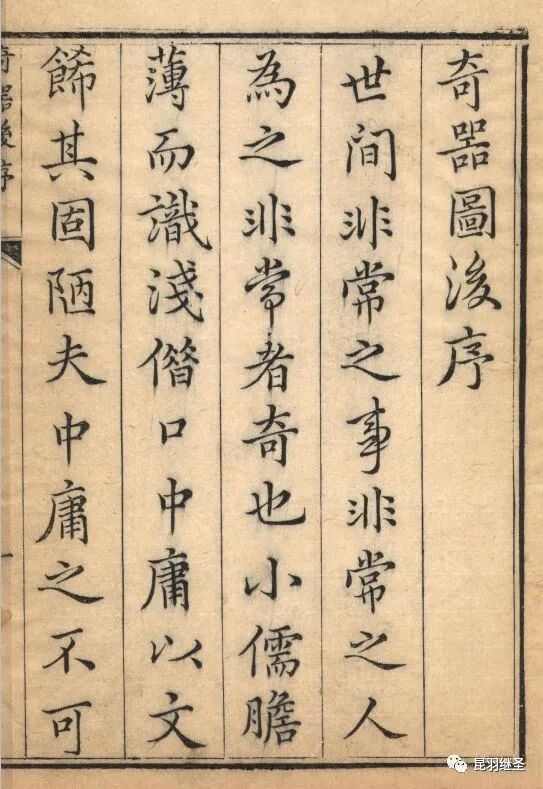 奇器圖後序
世間非常之事非常之人
為之非常者奇也小儒膽
薄而識淺僭口中庸以文
餙其固陋夫中庸之不可
奇器後序
一
昆羽继圣